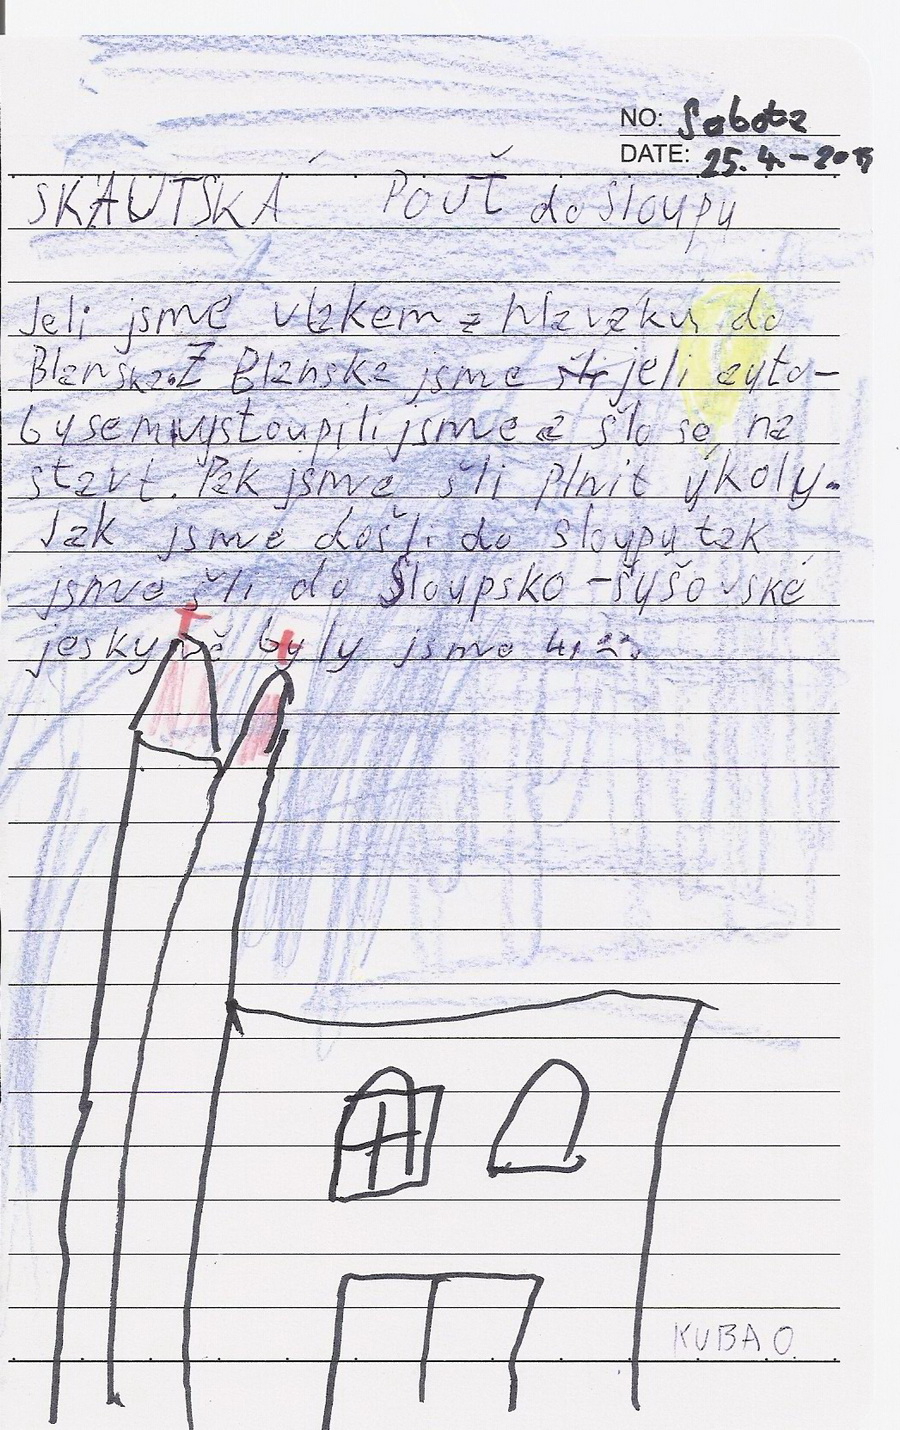 NO: Sobota
DATE: 25. 4. - 2015
SKAUTSKÁ POUŤ do Sloupu
Jeli jsme vlakem z hlaváku do
Blanska. Z Blanska jsme šli jeli auto-
busem vystoupili jsme a šlo se na
start. Pak jsme šli plnit úkoly.
Jak jsme došli do sloupu tak
jsme šli do Sloupsko - šušovské
jeskyně byly jsme 4,
KUBA O